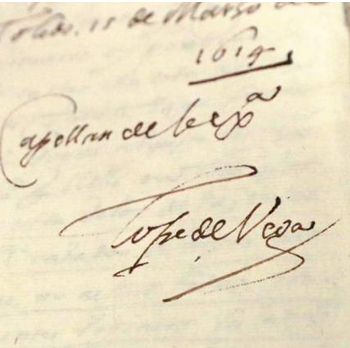 Toledo. 15 de Março de
1614.
Capellan de V. exª
Lope de Vega